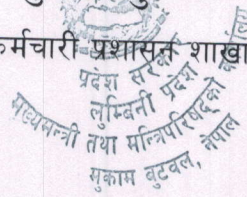 कर्मचारी प्रशासन शाखा
प्रदेश सरकार
लुम्बिनी प्रदेश
मुख्यमन्त्री तथा मन्त्रिपरिषद्को
मुकाम बुटवल, नेपाल